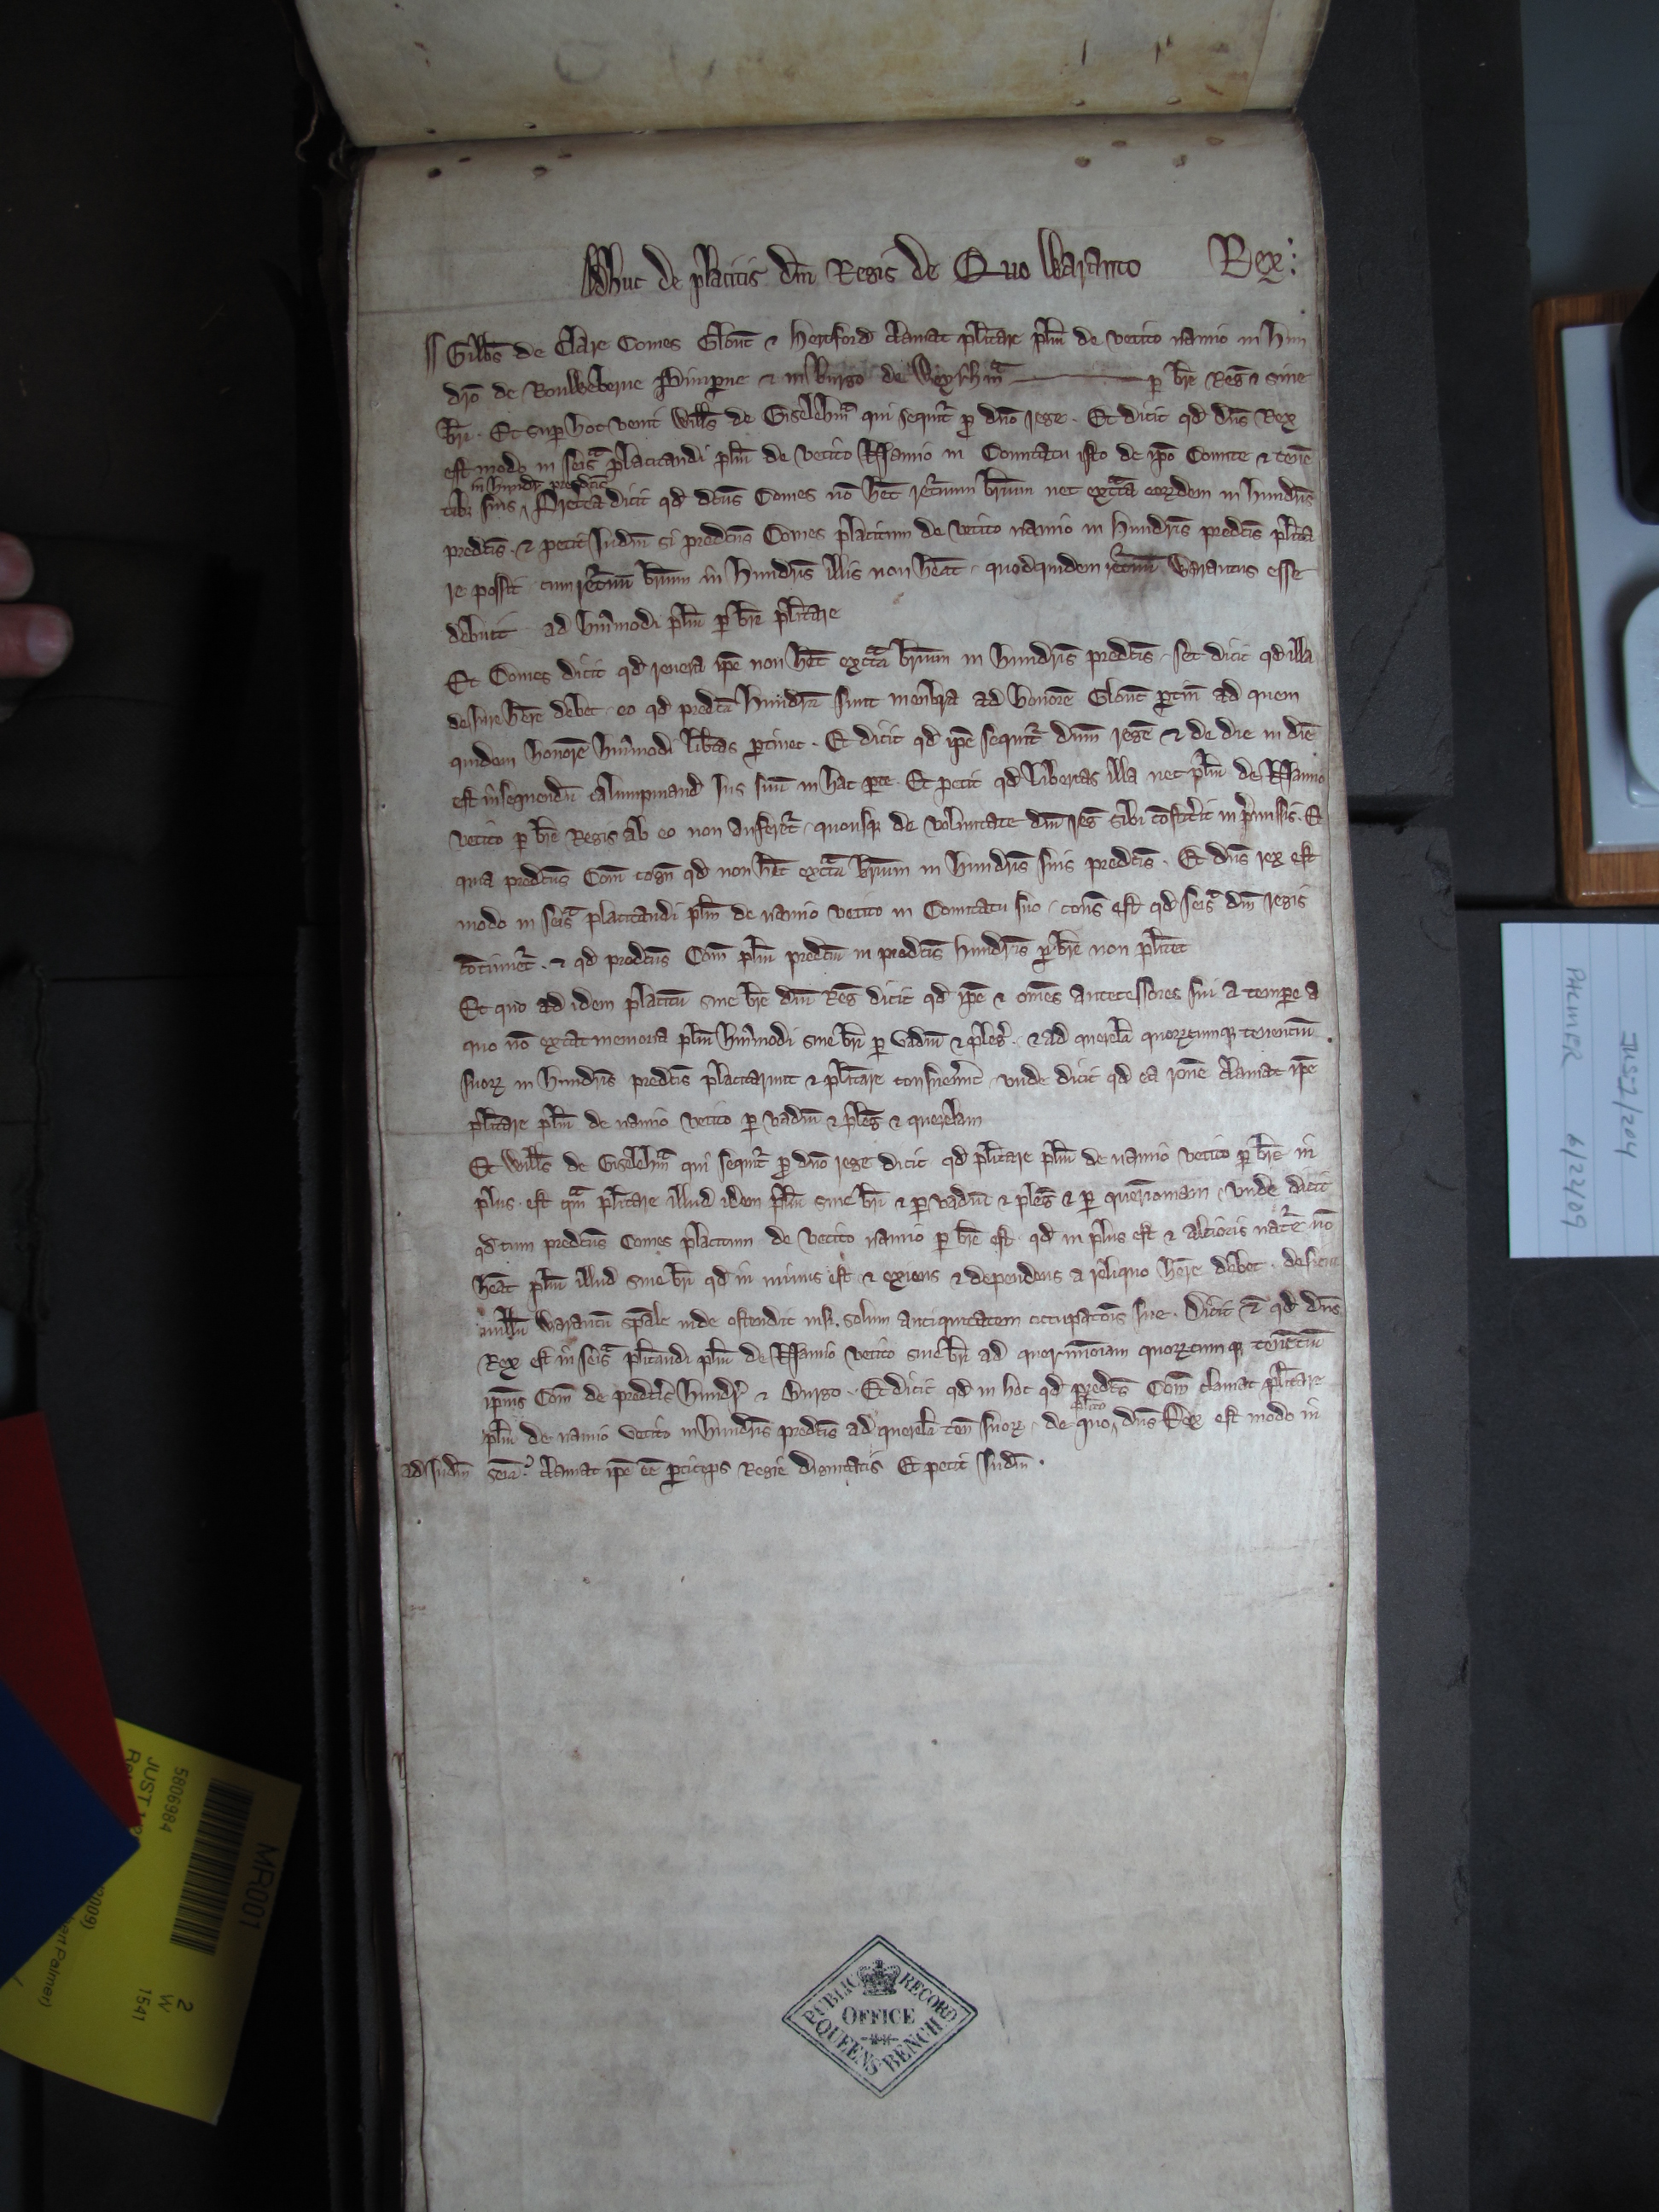 Adhuc de placitis dni Regis de Quo Waranto Rex:
Gilbs de Clare Comes Glouc & Hertford clamat plitare plm de vetito namio in Hun
dro de Roulweberue Pimperne & in burgo de Weyrhm p bre Reg & sine
br. Et sup hoc venit Wills de Giselehm qui sequit p dno rege. Et dicit qd dns Rex
est modo in seis placitandi plm de vetito Namio in Comitatu isto de ipo Comite & tene
in hundr predcis
tib suis, Preterea dicit qd dcus Comes no het returnum brium nec extcta eordem in hundris
predcis. & petit Judm si predcus Comes placitum de vetito namio in hundris predcis plita
re possit cum returnu brium in Hundris illis non heat. quodquidem returnu Warantus esse
debuit ad huimodi plm p br plitare
Et Comes dicit qd revera ipe non het extcta brium in Hundris predcis. set dicit qd illa
de Jure here debet. eo qd predca Hundra sunt menbra ad honore Glouc ptin ad quem
quidem honore huimodi libtas ptinet. Et dicit qd ipe sequit dnm rege & de die in die
est insequendu calumpniand Jus suu in hac pte. Et petit qd libertas illa nec plm de Namio
vetito p bre Regis ab eo non auferet. quousq de voluntate dni reg sibi in premissis. Et
quia predcus Com cogn qd non het extcta brium in Hundris suis predcis. Et dns rex est
modo in seis placitandi plm de namio vetito in Comitatu suo. cons est qd seis dni regis
continuet. & qd predcus Com plm predcm in predcis hundris p bre non plitet
Et quo ad idem placitu sine bre dni Reg dicit qd ipe & omes antecessores sui a tempe a
quo no extat memoria plm huimodi sine br p vadiu & pleg. & ad querela quorcumq tenentium
suor in hundris predcis placitarunt & plitare consueverunt. unde dicit qd ea rone clamat ipe
plitare plm de namio vetito p vadiu & pleg & querelam
Et Wills de Giselehm qui sequit p dno rege dicit qd plitare plm de namio vetito p bre in
plus est qm plitare illud idem plm sine br & p vadiu & pleg & p querimoniam. unde dicit
qd cum predcus Comes placitum de vetito namio p bre est qd in plus est & altioris nature no
heat plm illud sine br qd in minus est & exiens & dependens a reliquo here debet. desicut
nullu Warantu spale inde ostendit nisi solum antiquitatem occupacois sue. Dicit & qd dns
Rex est in seis plitandi plm de Namio vetito sine br ad querimoniam quorcumq tenentiu
ipius Com de predcis hundr & Burgo. Et dicit qd in hoc qd predcs Com clamat plitare
plm de namio vetito in hundris predcis ad querela ten suor. de quo plito dns Rex est modo in
ad Judm seis? clamat ipe ee pticeps Regie dignitatis Et petit Judm.
PUBLIC RECORD
OFFICE
QUEENS BENCH
JUST 1/204
PALMER 6/22/09
MR001
5806984
JUST 1
2
W
1541
2009)
Palmer)